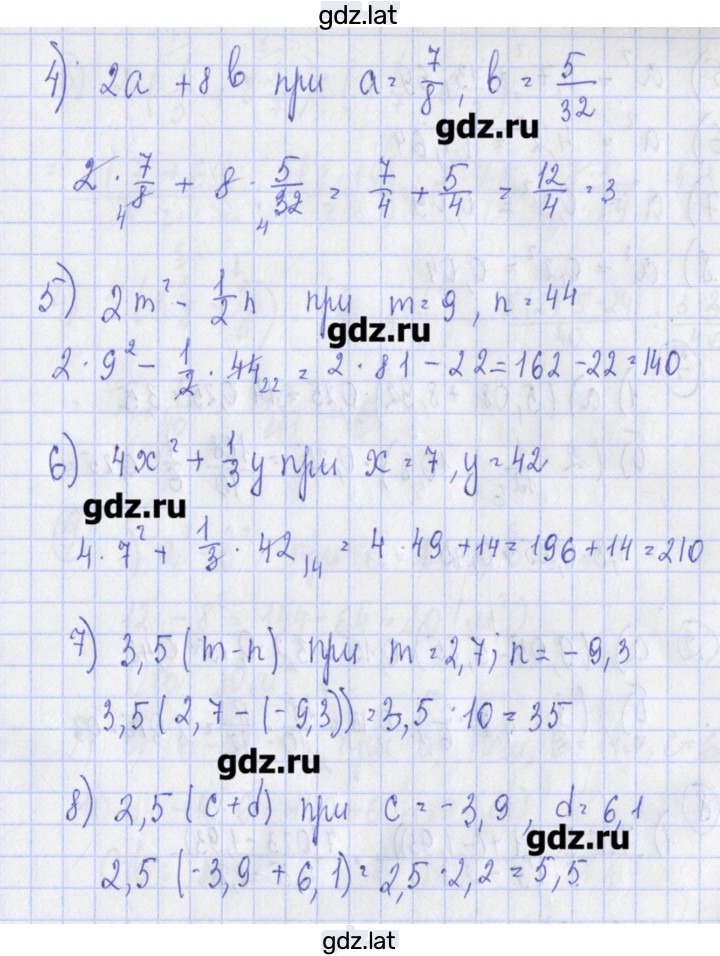 gdz.lat
4) 2a + 8b при a = 7/8, b = 5/32
gdz.ru
2 · 7/8 4 + 8 · 5/32 4 = 7/4 + 5/4 = 12/4 = 3
5) 2m² - 1/2 n при m = 9, n = 44
gdz.ru
2 · 9² - 1/2 · 44 22 = 2 · 81 - 22 = 162 - 22 = 140
6) 4x² + 1/3 y при x = 7, y = 42
gdz.ru
4 · 7² + 1/3 · 42 14 = 4 · 49 + 14 = 196 + 14 = 210
7) 3,5 (m - n) при m = 2,7; n = - 9,3
3,5 (2,7 - (-9,3)) = 3,5 · 10 = 35
gdz.ru
8) 2,5 (c + d) при c = - 3,9, d = 6,1
gdz.ru
2,5 (-3,9 + 6,1) = 2,5 · 2,2 = 5,5
gdz.lat